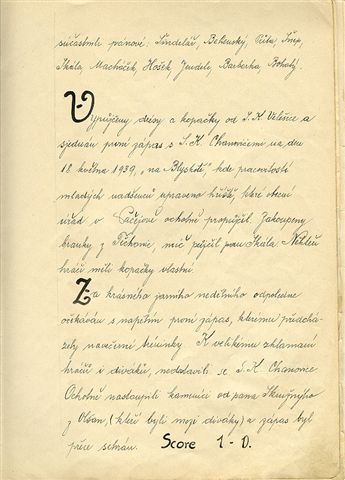 súčastnili pánové: Šindelář, Belenský, Púta, Šnejp,
Skála, Macháček, Hošek, Jandele, Barborka, Bohatý.
Vypůjčeny dresy a kopačky od S.K. Velešice a
sjednán první zápas s S.K. Chanovicemi na den
18 května 1939, na Blýskotě, kde pracovitostí
mladých nadšenců upraveno hřiště, které obecní
úřad v Pačejově ochotně propůjčil. Zakoupeny
branky, z Těchonic, míč půjčil pan Skála. Někteří
hráči měli kopačky vlastní.
Za krásného jarního nedělního odpoledne
očekáván s napětím první zápas, kterému předchá-
zely navečerní treninky. K velikému zklamání
hráčů i diváků, nedostavili se S.K. Chanovice
Ochotně nastoupili kameníci od pana
z Olšan, (kteří byli mezi diváky) a zápas byl
přece sehrán. Score 1-0.